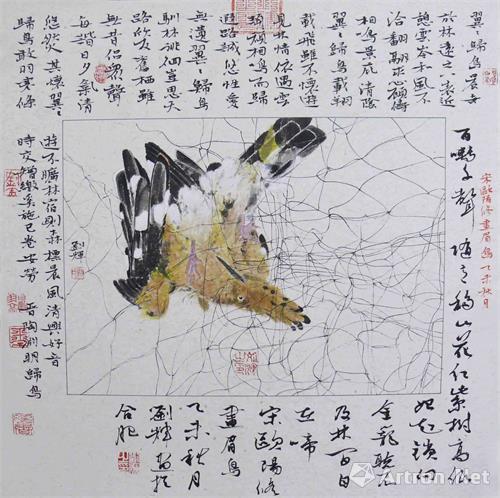 翼〻歸鳥晨去
於林遠之八表近
憩雲岑和風不
洽翻翮求心顧儔
相鳴景庇清陰
翼〻歸鳥載翔
載飛雖不懷遊
見林情依遇雲
頡頏相鳴而歸
遐路誠悠性愛
無遺翼〻歸鳥
馴林徘徊豈思天
路欣反舊棲雖
無昔侶衆聲
每諧日夕氣清
悠然其懷翼〻
歸鳥戢羽寒條
遊不曠林宿則森標晨風清興好音
時交矰繳奚施已卷安勞 晉陶淵明歸鳥
劉輝
宋歐陽修畫眉鳥 乙未秋月
百囀千聲 隨意移山花紅紫樹高低
始知鎖向
金籠聽不
及林間自
在啼
宋歐陽修
畫眉鳥
乙未秋月
劉輝寫於
合肥
Artron.Net